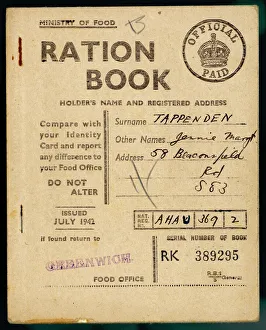 MINISTRY OF FOOD
OFFICIAL
PAID
RATION
BOOK
HOLDER'S NAME AND REGISTERED ADDRESS
Compare with
your Identity
Card and report
any difference to
your Food Office
DO NOT
ALTER
Surname TAPPENDEN
Other Names Jennie Margt
Address 58 Beaconsfield
Rd
SE3
ISSUED
JULY 1942
NAT.
REG.
No.
AHAU 369 2
If found return to
GREENWICH
FOOD OFFICE
SERIAL NUMBER OF BOOK
RK 389295
R.B.1
(General)